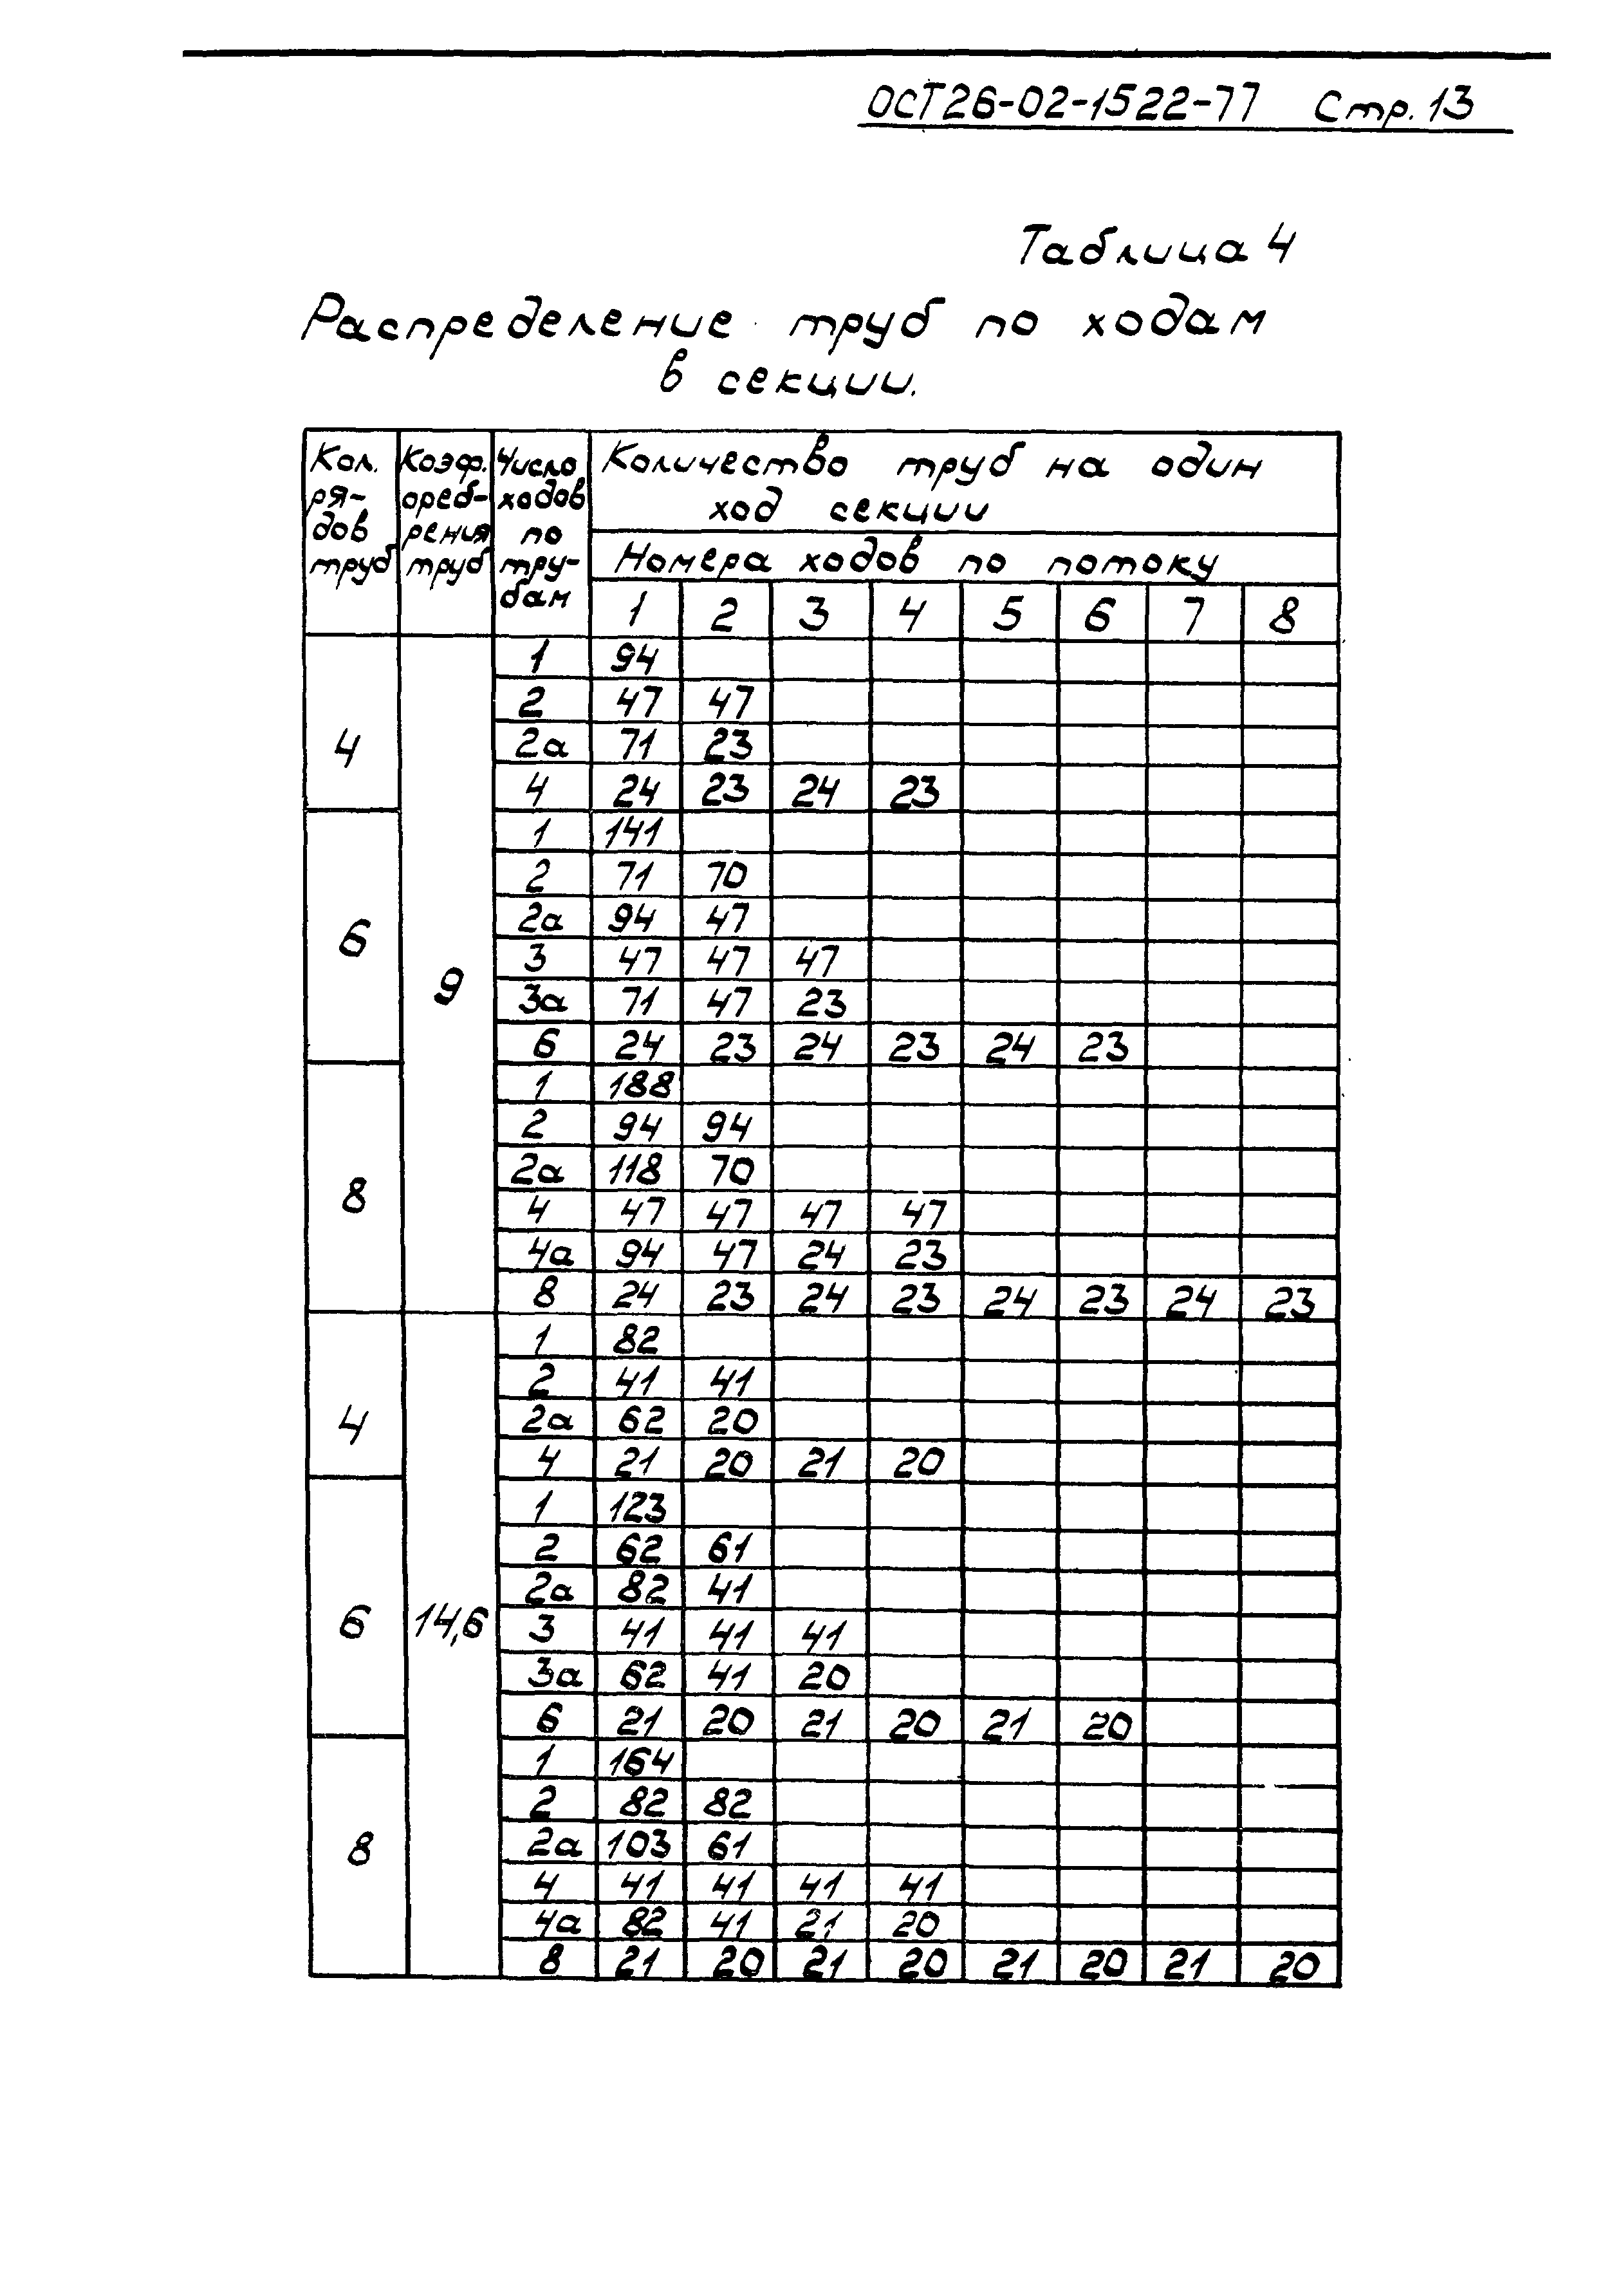 ОСТ26-02-1522-77 Стр.13
Таблица 4
Распределение труб по ходам
в секции.
Кол. рядов труб | Коэф. оребрения труб | Число ходов по трубам | Количество труб на один ход секции
Номера ходов по потоку
1 2 3 4 5 6 7 8
4 9 1 94
2 47 47
2а 71 23
4 24 23 24 23
6 1 141
2 71 70
2а 94 47
3 47 47 47
3а 71 47 23
6 24 23 24 23 24 23
8 1 188
2 94 94
2а 118 70
4 47 47 47 47
4а 94 47 24 23
8 24 23 24 23 24 23 24 23
4 14,6 1 82
2 41 41
2а 62 20
4 21 20 21 20
6 1 123
2 62 61
2а 82 41
3 41 41 41
3а 62 41 20
6 21 20 21 20 21 20
8 1 164
2 82 82
2а 103 61
4 41 41 41 41
4а 82 41 21 20
8 21 20 21 20 21 20 21 20